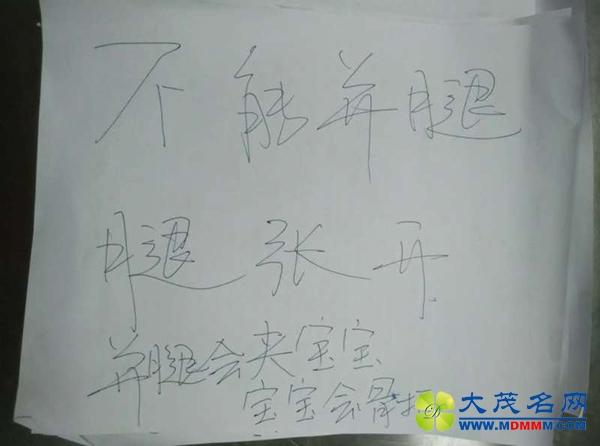 不能并腿
腿张开
并腿会夹宝宝
宝宝会骨折
大茂名网
WWW.MDMMM.COM